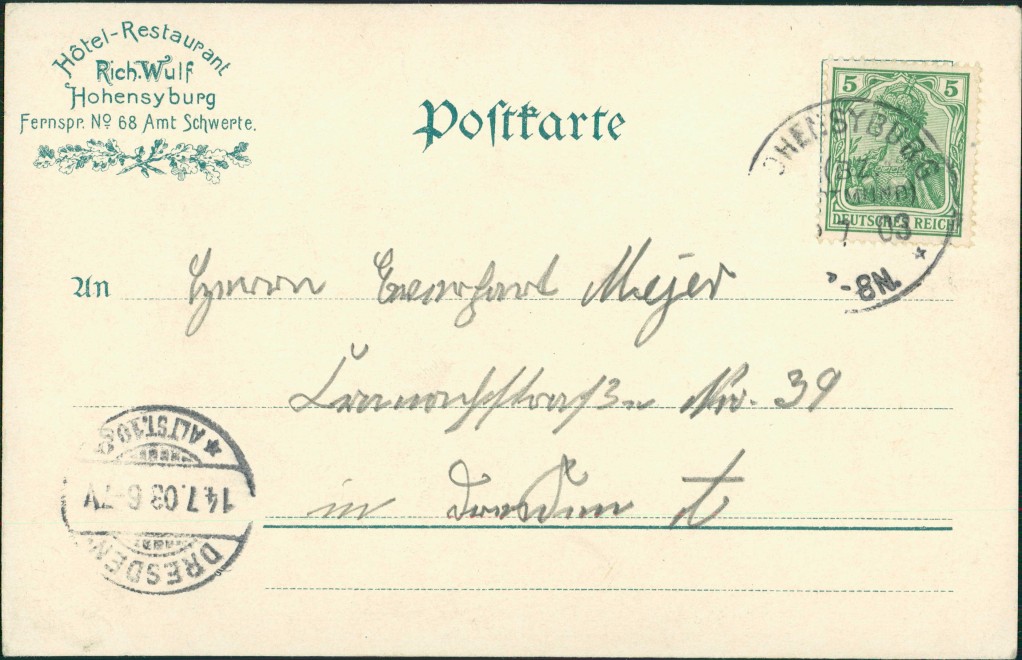 Hôtel-Restaurant
Rich. Wulf
Hohensyburg
Fernspr. Nº 68 Amt Schwerte.
Postkarte
5 5
DEUTSCHES REICH
OHENSYBURG
(BZ.
TMUND)
7 03
-8N.
An Herrn Meyer
Cranachstraße 39
in Dresden
* ALTST.19
14.7.03 6-7V
DRESDEN